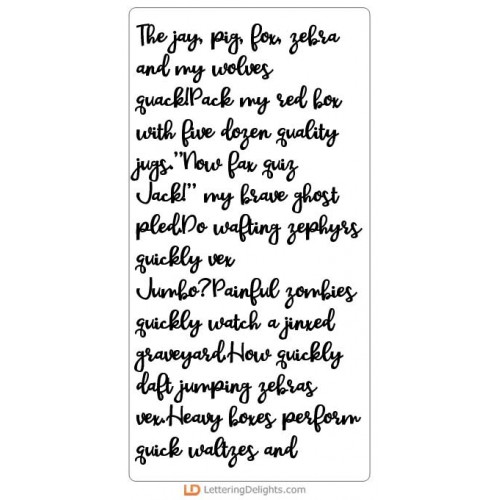 The jay, pig, fox, zebra
and my wolves
quack!Pack my red box
with five dozen quality
jugs."Now fax quiz
Jack!" my brave ghost
pled.Do wafting zephyrs
quickly vex
Jumbo?Painful zombies
quickly watch a jinxed
graveyard.How quickly
daft jumping zebras
vex.Heavy boxes perform
quick waltzes and
LD LetteringDelights.com